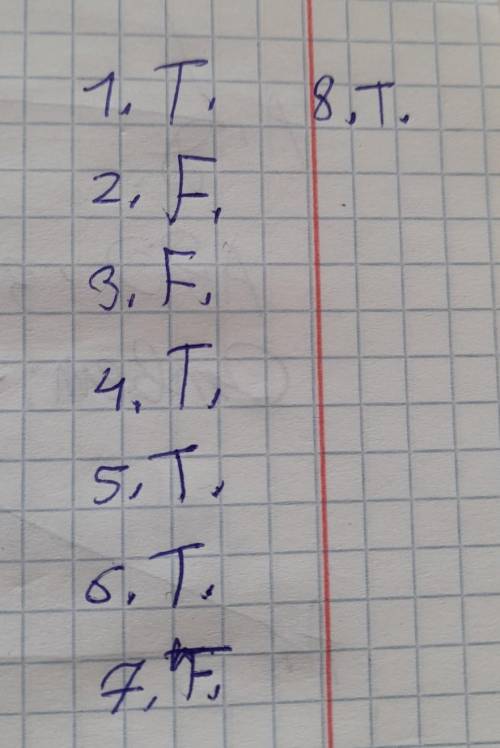 1. T.
2. F.
3. F.
4. T.
5. T.
6. T.
7. F.
8. T.